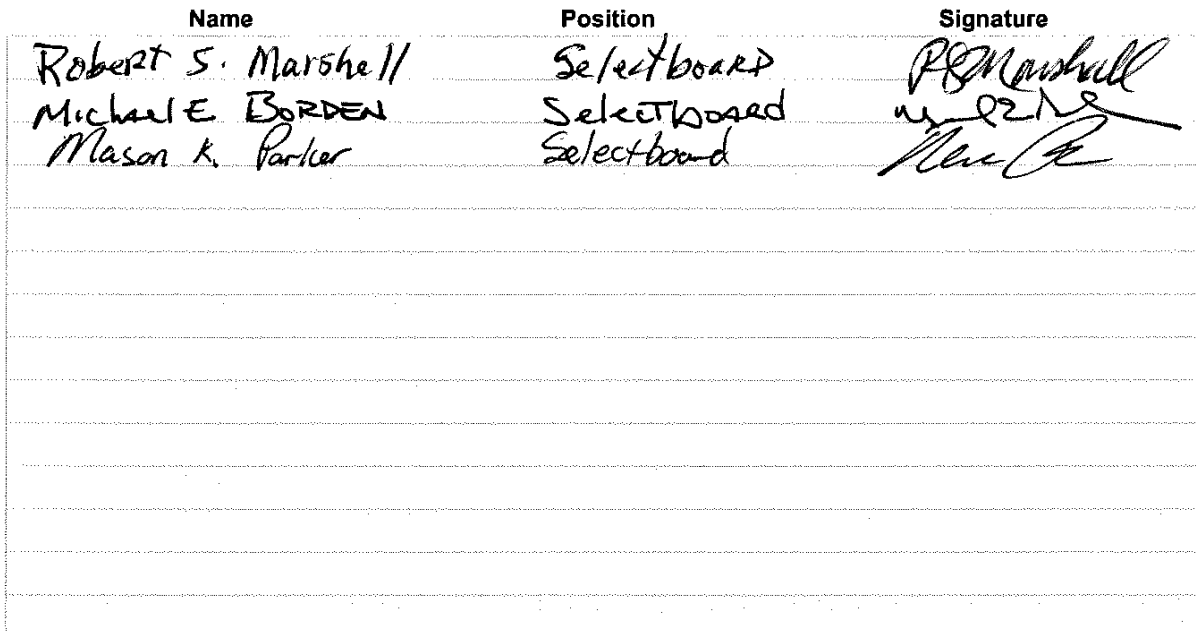 Name Position Signature
Robert S. Marshall Selectboard RSMarshall
Michael E Borden Selectboard
Mason K. Parker Selectboard